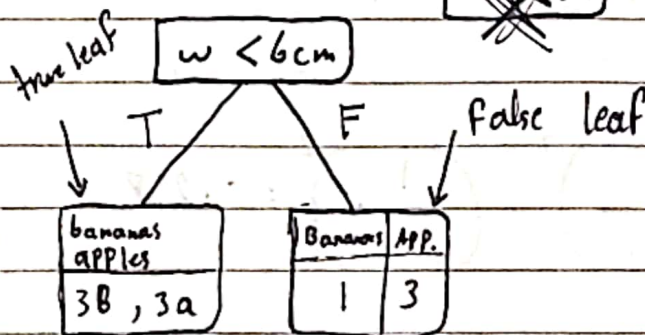 w < 6cm
true leaf
T
F
false leaf
bananas
apples
3B , 3a
Bananas App.
1 3